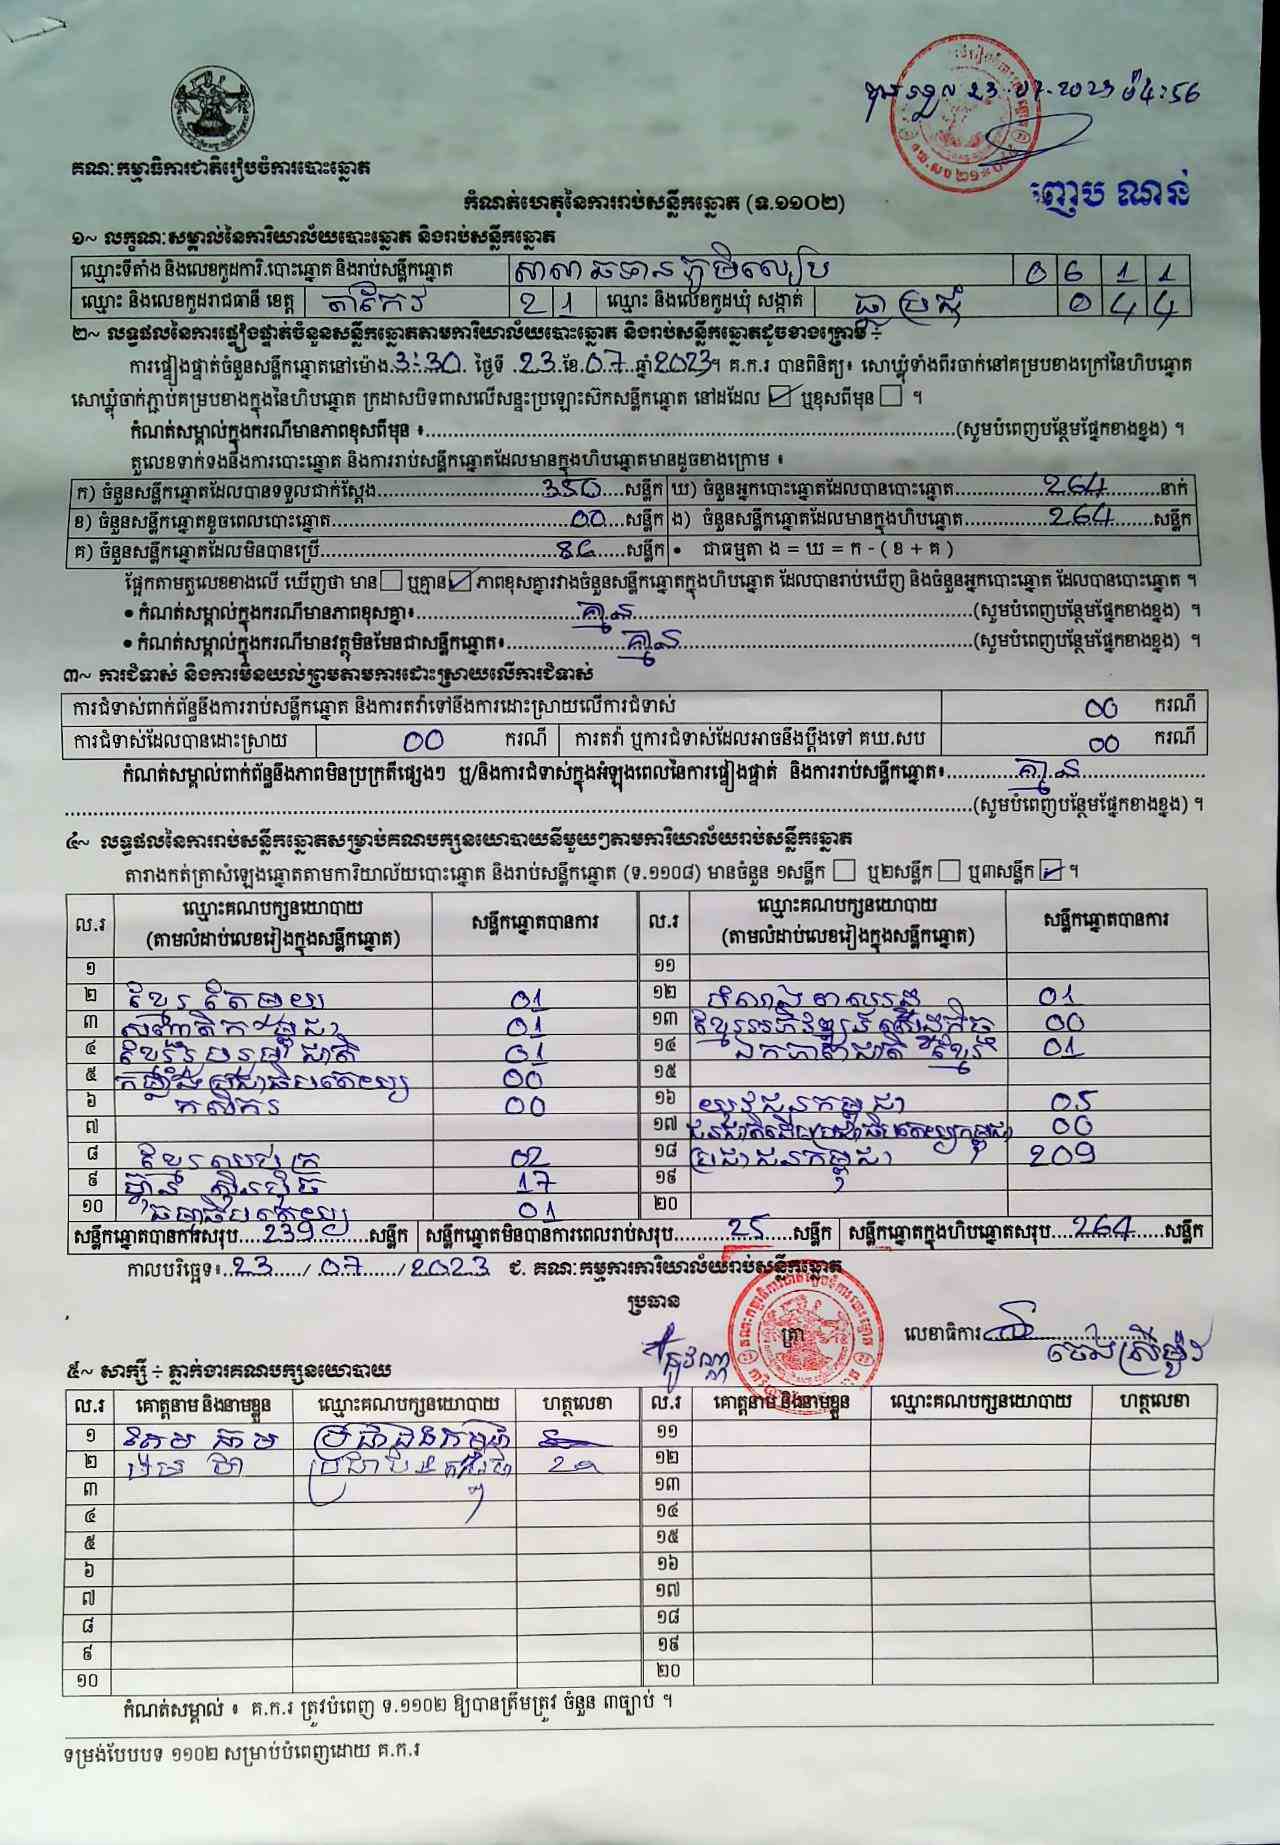 23.07.2023 ម៉4:56
គណៈកម្មាធិការជាតិរៀបចំការបោះឆ្នោត
ញែប ណន់
កំណត់ហេតុនៃការរាប់សន្លឹកឆ្នោត (ទ.១១០២)
១~ លក្ខណៈសម្គាល់នៃការិយាល័យបោះឆ្នោត និងរាប់សន្លឹកឆ្នោត
ឈ្មោះទីតាំង និងលេខកូដការិ.បោះឆ្នោត និងរាប់សន្លឹកឆ្នោត សាលាឆទានភូមិលៀប 0 6 1 1
ឈ្មោះ និងលេខកូដរាជធានី ខេត្ត តាកែវ 2 1 ឈ្មោះ និងលេខកូដឃុំ សង្កាត់ 0 4 4
២~ លទ្ធផលនៃការផ្ទៀងផ្ទាត់ចំនួនសន្លឹកឆ្នោតតាមការិយាល័យបោះឆ្នោត និងរាប់សន្លឹកឆ្នោតដូចខាងក្រោម ÷
ការផ្ទៀងផ្ទាត់ចំនួនសន្លឹកឆ្នោតនៅម៉ោង 3:30 ថ្ងៃទី 23 ខែ 07 ឆ្នាំ 2023 ។ គ.ក.រ បានពិនិត្យ៖ សោឃ្លុំទាំងពីរចាក់នៅគម្របខាងក្រៅនៃហិបឆ្នោត
សោឃ្លុំចាក់ភ្ជាប់គម្របខាងក្នុងនៃហិបឆ្នោត ក្រដាសបិទពាសលើសន្ទះប្រឡោះស៊កសន្លឹកឆ្នោត នៅដដែល ☑ ឬខុសពីមុន ☐ ។
កំណត់សម្គាល់ក្នុងករណីមានភាពខុសពីមុន ៖ (សូមបំពេញបន្ថែមផ្នែកខាងខ្នង) ។
តួលេខទាក់ទងនឹងការបោះឆ្នោត និងការរាប់សន្លឹកឆ្នោតដែលមានក្នុងហិបឆ្នោតមានដូចខាងក្រោម ៖
ក) ចំនួនសន្លឹកឆ្នោតដែលបានទទួលជាក់ស្តែង 350 សន្លឹក ឃ) ចំនួនអ្នកបោះឆ្នោតដែលបានបោះឆ្នោត 264 នាក់
ខ) ចំនួនសន្លឹកឆ្នោតខូចពេលបោះឆ្នោត 00 សន្លឹក ង) ចំនួនសន្លឹកឆ្នោតដែលមានក្នុងហិបឆ្នោត 264 សន្លឹក
គ) ចំនួនសន្លឹកឆ្នោតដែលមិនបានប្រើ 86 សន្លឹក • ជាធម្មតា ង = ឃ = ក - ( ខ + គ )
ផ្អែកតាមតួលេខខាងលើ ឃើញថា មាន ☐ ឬគ្មាន ☑ ភាពខុសគ្នារវាងចំនួនសន្លឹកឆ្នោតក្នុងហិបឆ្នោត ដែលបានរាប់ឃើញ និងចំនួនអ្នកបោះឆ្នោត ដែលបានបោះឆ្នោត ។
• កំណត់សម្គាល់ក្នុងករណីមានភាពខុសគ្នា៖ គ្មាន (សូមបំពេញបន្ថែមផ្នែកខាងខ្នង) ។
• កំណត់សម្គាល់ក្នុងករណីមានវត្ថុមិនមែនជាសន្លឹកឆ្នោត៖ គ្មាន (សូមបំពេញបន្ថែមផ្នែកខាងខ្នង) ។
៣~ ការជំទាស់ និងការមិនយល់ព្រមតាមការដោះស្រាយលើការជំទាស់
ការជំទាស់ពាក់ព័ន្ធនឹងការរាប់សន្លឹកឆ្នោត និងការតវ៉ាទៅនឹងការដោះស្រាយលើការជំទាស់ 00 ករណី
ការជំទាស់ដែលបានដោះស្រាយ 00 ករណី ការតវ៉ា ឬការជំទាស់ដែលអាចនឹងប្តឹងទៅ គឃ.សប 00 ករណី
កំណត់សម្គាល់ពាក់ព័ន្ធនឹងភាពមិនប្រក្រតីផ្សេងៗ ឬ/និងការជំទាស់ក្នុងអំឡុងពេលនៃការផ្ទៀងផ្ទាត់ និងការរាប់សន្លឹកឆ្នោត៖ គ្មាន
(សូមបំពេញបន្ថែមផ្នែកខាងខ្នង) ។
៤~ លទ្ធផលនៃការរាប់សន្លឹកឆ្នោតសម្រាប់គណបក្សនយោបាយនីមួយៗតាមការិយាល័យរាប់សន្លឹកឆ្នោត
តារាងកត់ត្រាសំឡេងឆ្នោតតាមការិយាល័យបោះឆ្នោត និងរាប់សន្លឹកឆ្នោត (ទ.១១០៨) មានចំនួន ១សន្លឹក ☐ ឬ២សន្លឹក ☐ ឬ៣សន្លឹក ☑ ។
ល.រ ឈ្មោះគណបក្សនយោបាយ (តាមលំដាប់លេខរៀងក្នុងសន្លឹកឆ្នោត) សន្លឹកឆ្នោតបានការ ល.រ ឈ្មោះគណបក្សនយោបាយ (តាមលំដាប់លេខរៀងក្នុងសន្លឹកឆ្នោត) សន្លឹកឆ្នោតបានការ
១ ១១
២ ខ្មែរតែមួយ 01 ១២ 01
៣ សញ្ជាតិកម្ពុជា 01 ១៣ ខ្មែរអភិវឌ្ឍន៍សេដ្ឋកិច្ច 00
៤ ខ្មែររួបរួមជាតិ 01 ១៤ ឯកភាពជាតិខ្មែរ 01
៥ កម្លាំងប្រជាធិបតេយ្យ 00 ១៥
៦ កសិករ 00 ១៦ យុវជនកម្ពុជា 05
៧ ១៧ ជនជាតិដើមប្រជាធិបតេយ្យកម្ពុជា 00
៨ ខ្មែរឈប់ក្រ 02 ១៨ ប្រជាជនកម្ពុជា 209
៩ ហ្វ៊ុនស៊ិនប៉ិច 17 ១៩
១០ ធម្មាធិបតេយ្យ 01 ២០
សន្លឹកឆ្នោតបានការសរុប 239 សន្លឹក សន្លឹកឆ្នោតមិនបានការពេលរាប់សរុប 25 សន្លឹក សន្លឹកឆ្នោតក្នុងហិបឆ្នោតសរុប 264 សន្លឹក
កាលបរិច្ឆេទ៖ 23 / 07 / 2023 ជ. គណៈកម្មការការិយាល័យរាប់សន្លឹកឆ្នោត
ប្រធាន
ត្រា លេខាធិការ
៥~ សាក្សី ÷ ភ្នាក់ងារគណបក្សនយោបាយ
ល.រ គោត្តនាម និងនាមខ្លួន ឈ្មោះគណបក្សនយោបាយ ហត្ថលេខា ល.រ គោត្តនាម និងនាមខ្លួន ឈ្មោះគណបក្សនយោបាយ ហត្ថលេខា
១ ប្រជាជនកម្ពុជា ១១
២ ប្រជាជនកម្ពុជា ១២
៣ ១៣
៤ ១៤
៥ ១៥
៦ ១៦
៧ ១៧
៨ ១៨
៩ ១៩
១០ ២០
កំណត់សម្គាល់ ៖ គ.ក.រ ត្រូវបំពេញ ទ.១១០២ ឱ្យបានត្រឹមត្រូវ ចំនួន ៣ច្បាប់ ។
ទម្រង់បែបបទ ១១០២ សម្រាប់បំពេញដោយ គ.ក.រ